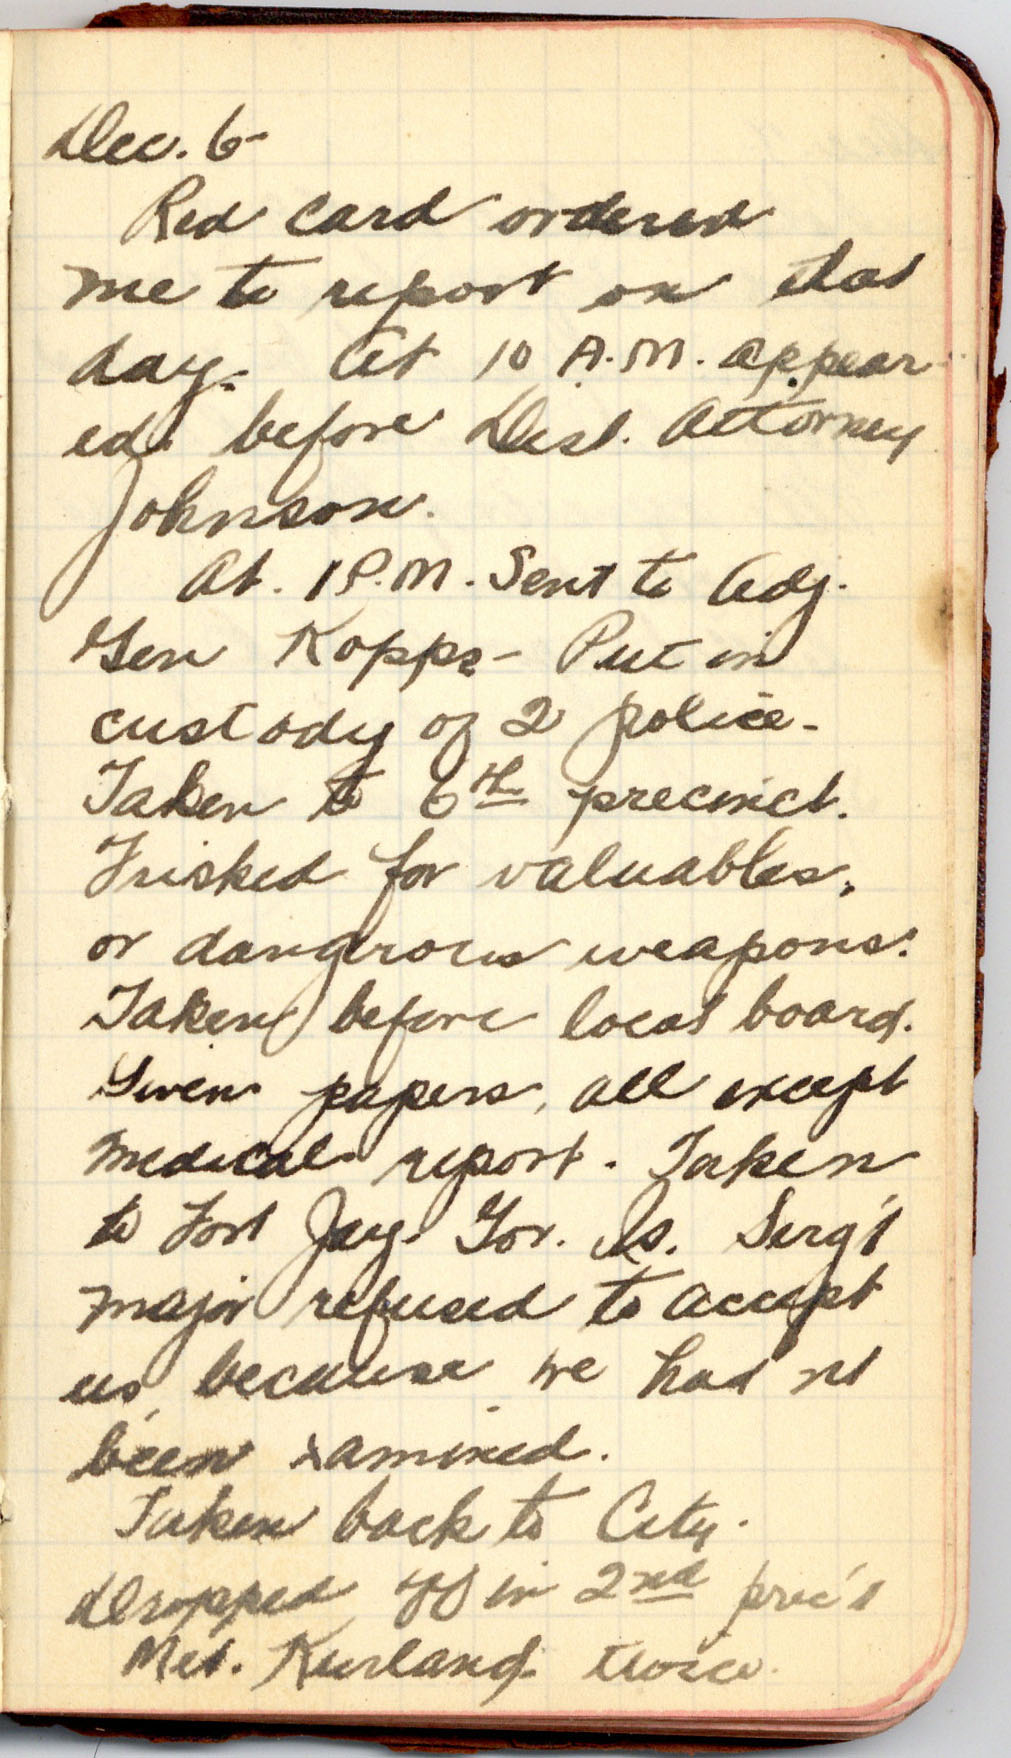 Dec. 6-
Red card ordered
me to report on that
day. At 10 A.M. appear-
ed before Dist. Attorney
Johnson.
At. 1 P.M. Sent to Adj.
Gen Kopps- Put in
custody of 2 police.
Taken to 6th precinct.
Frisked for valuables,
or dangerous weapons.
Taken before local board.
Given papers, all except
medical report. Taken
to Fort Jay. Gov. Is. Serg't
major refused to accept
us, because we had not
been examined.
Taken back to City.
Dropped off in 2nd prec't
Met. Kurland twice.